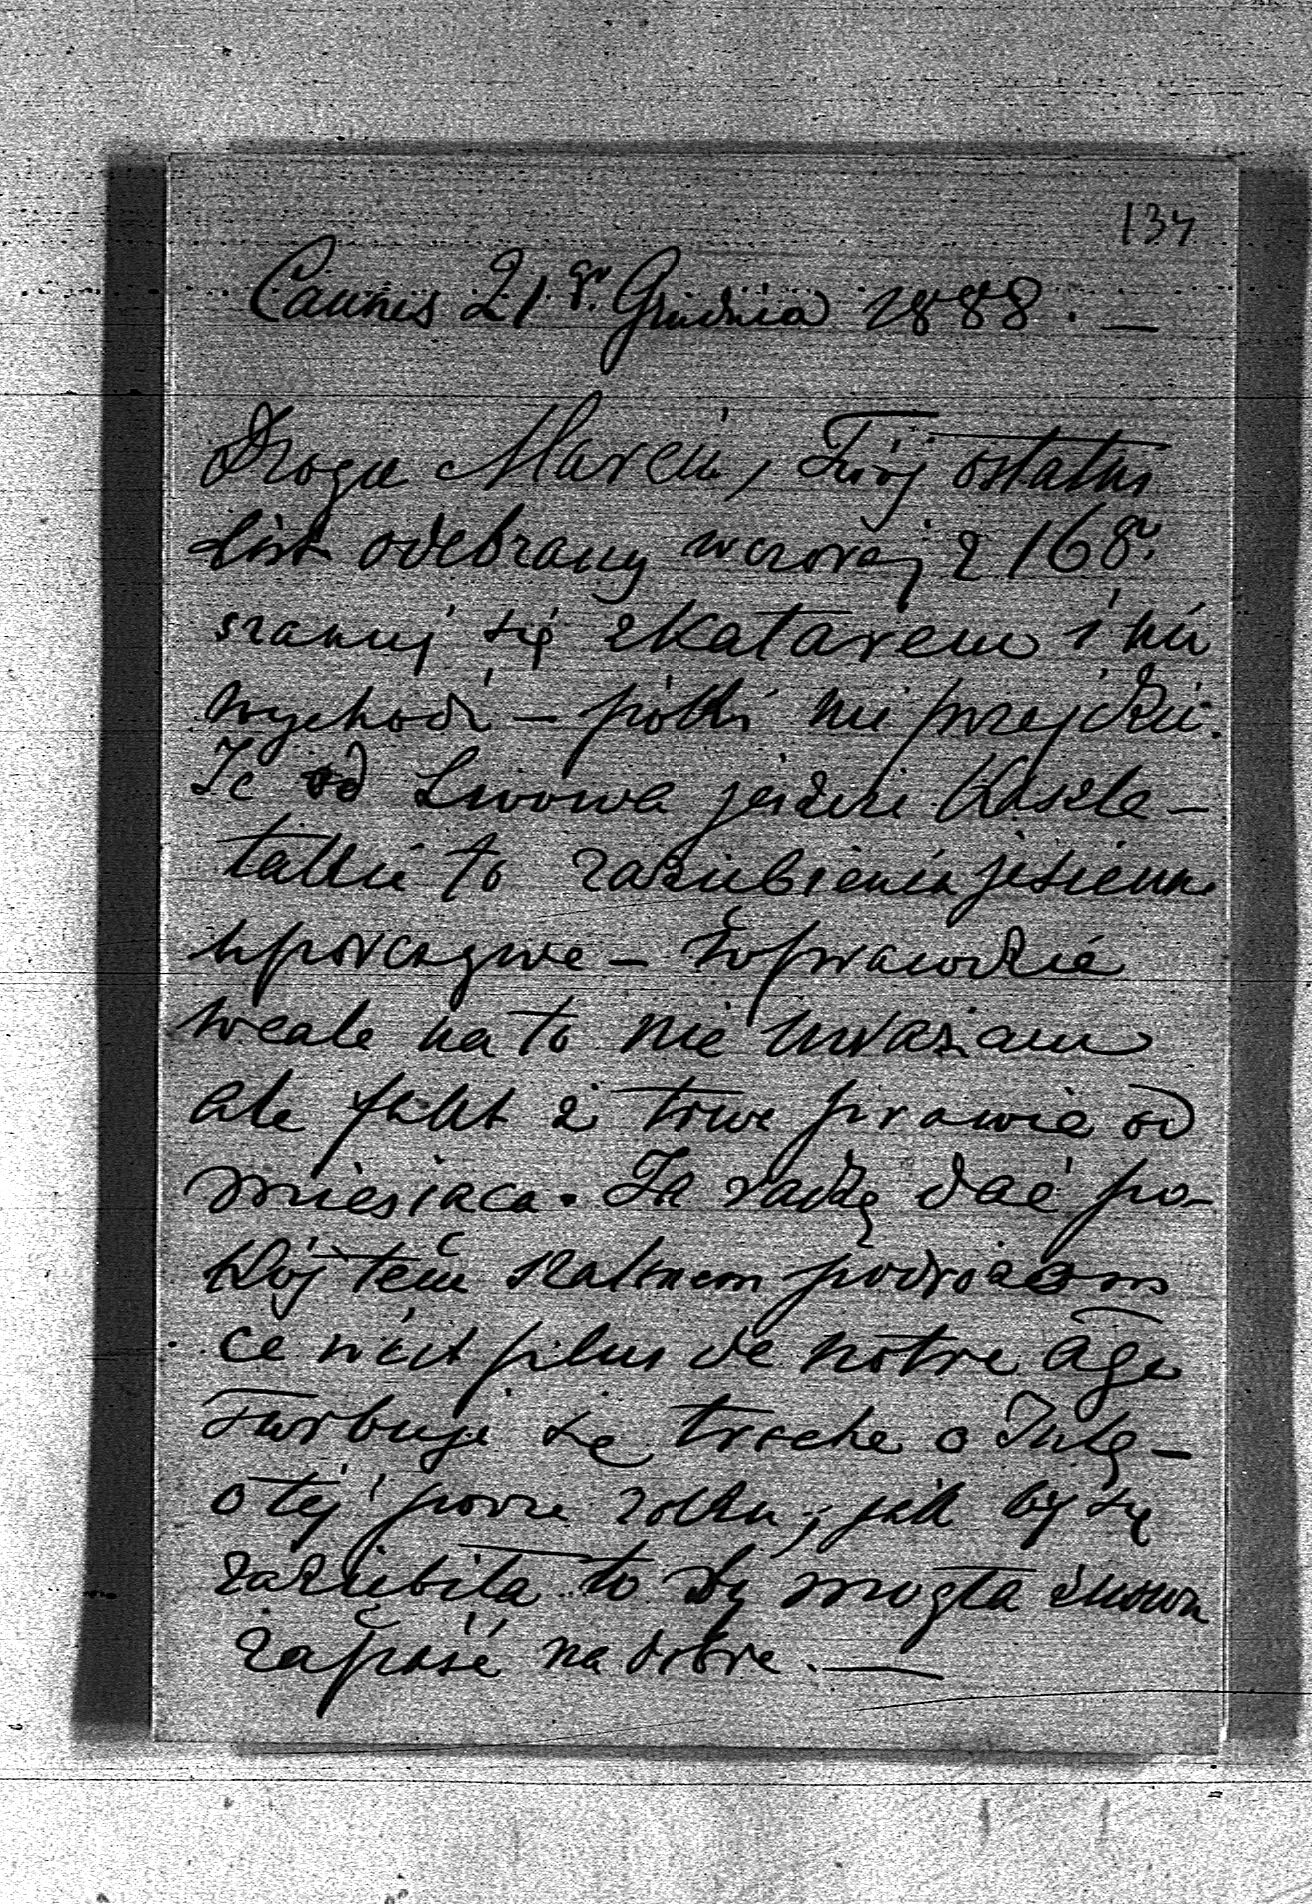 134
Cannes 21 gr. Grudnia 1888. —
Drogi Marcin, Twój ostatni
list odebrany wczoraj z 16 gr.
szanuj się z katarem i nie
wychodź — póki nie przejdzie.
Ja od Lwowa jeszcze kaszlę —
takie to zaziębienia jesienne
uporczywe — Coprawdzie
wcale na to nie uważam
ale fakt że trwa prawie od
miesiąca. Ja radzę dać po-
kój tem podróżom
ce n'est plus de notre âge
Turbuję się trochę o Julę —
o tej porze roku, jak by się
zaziębiła to by mogła znowu
zapaść na dobre. —